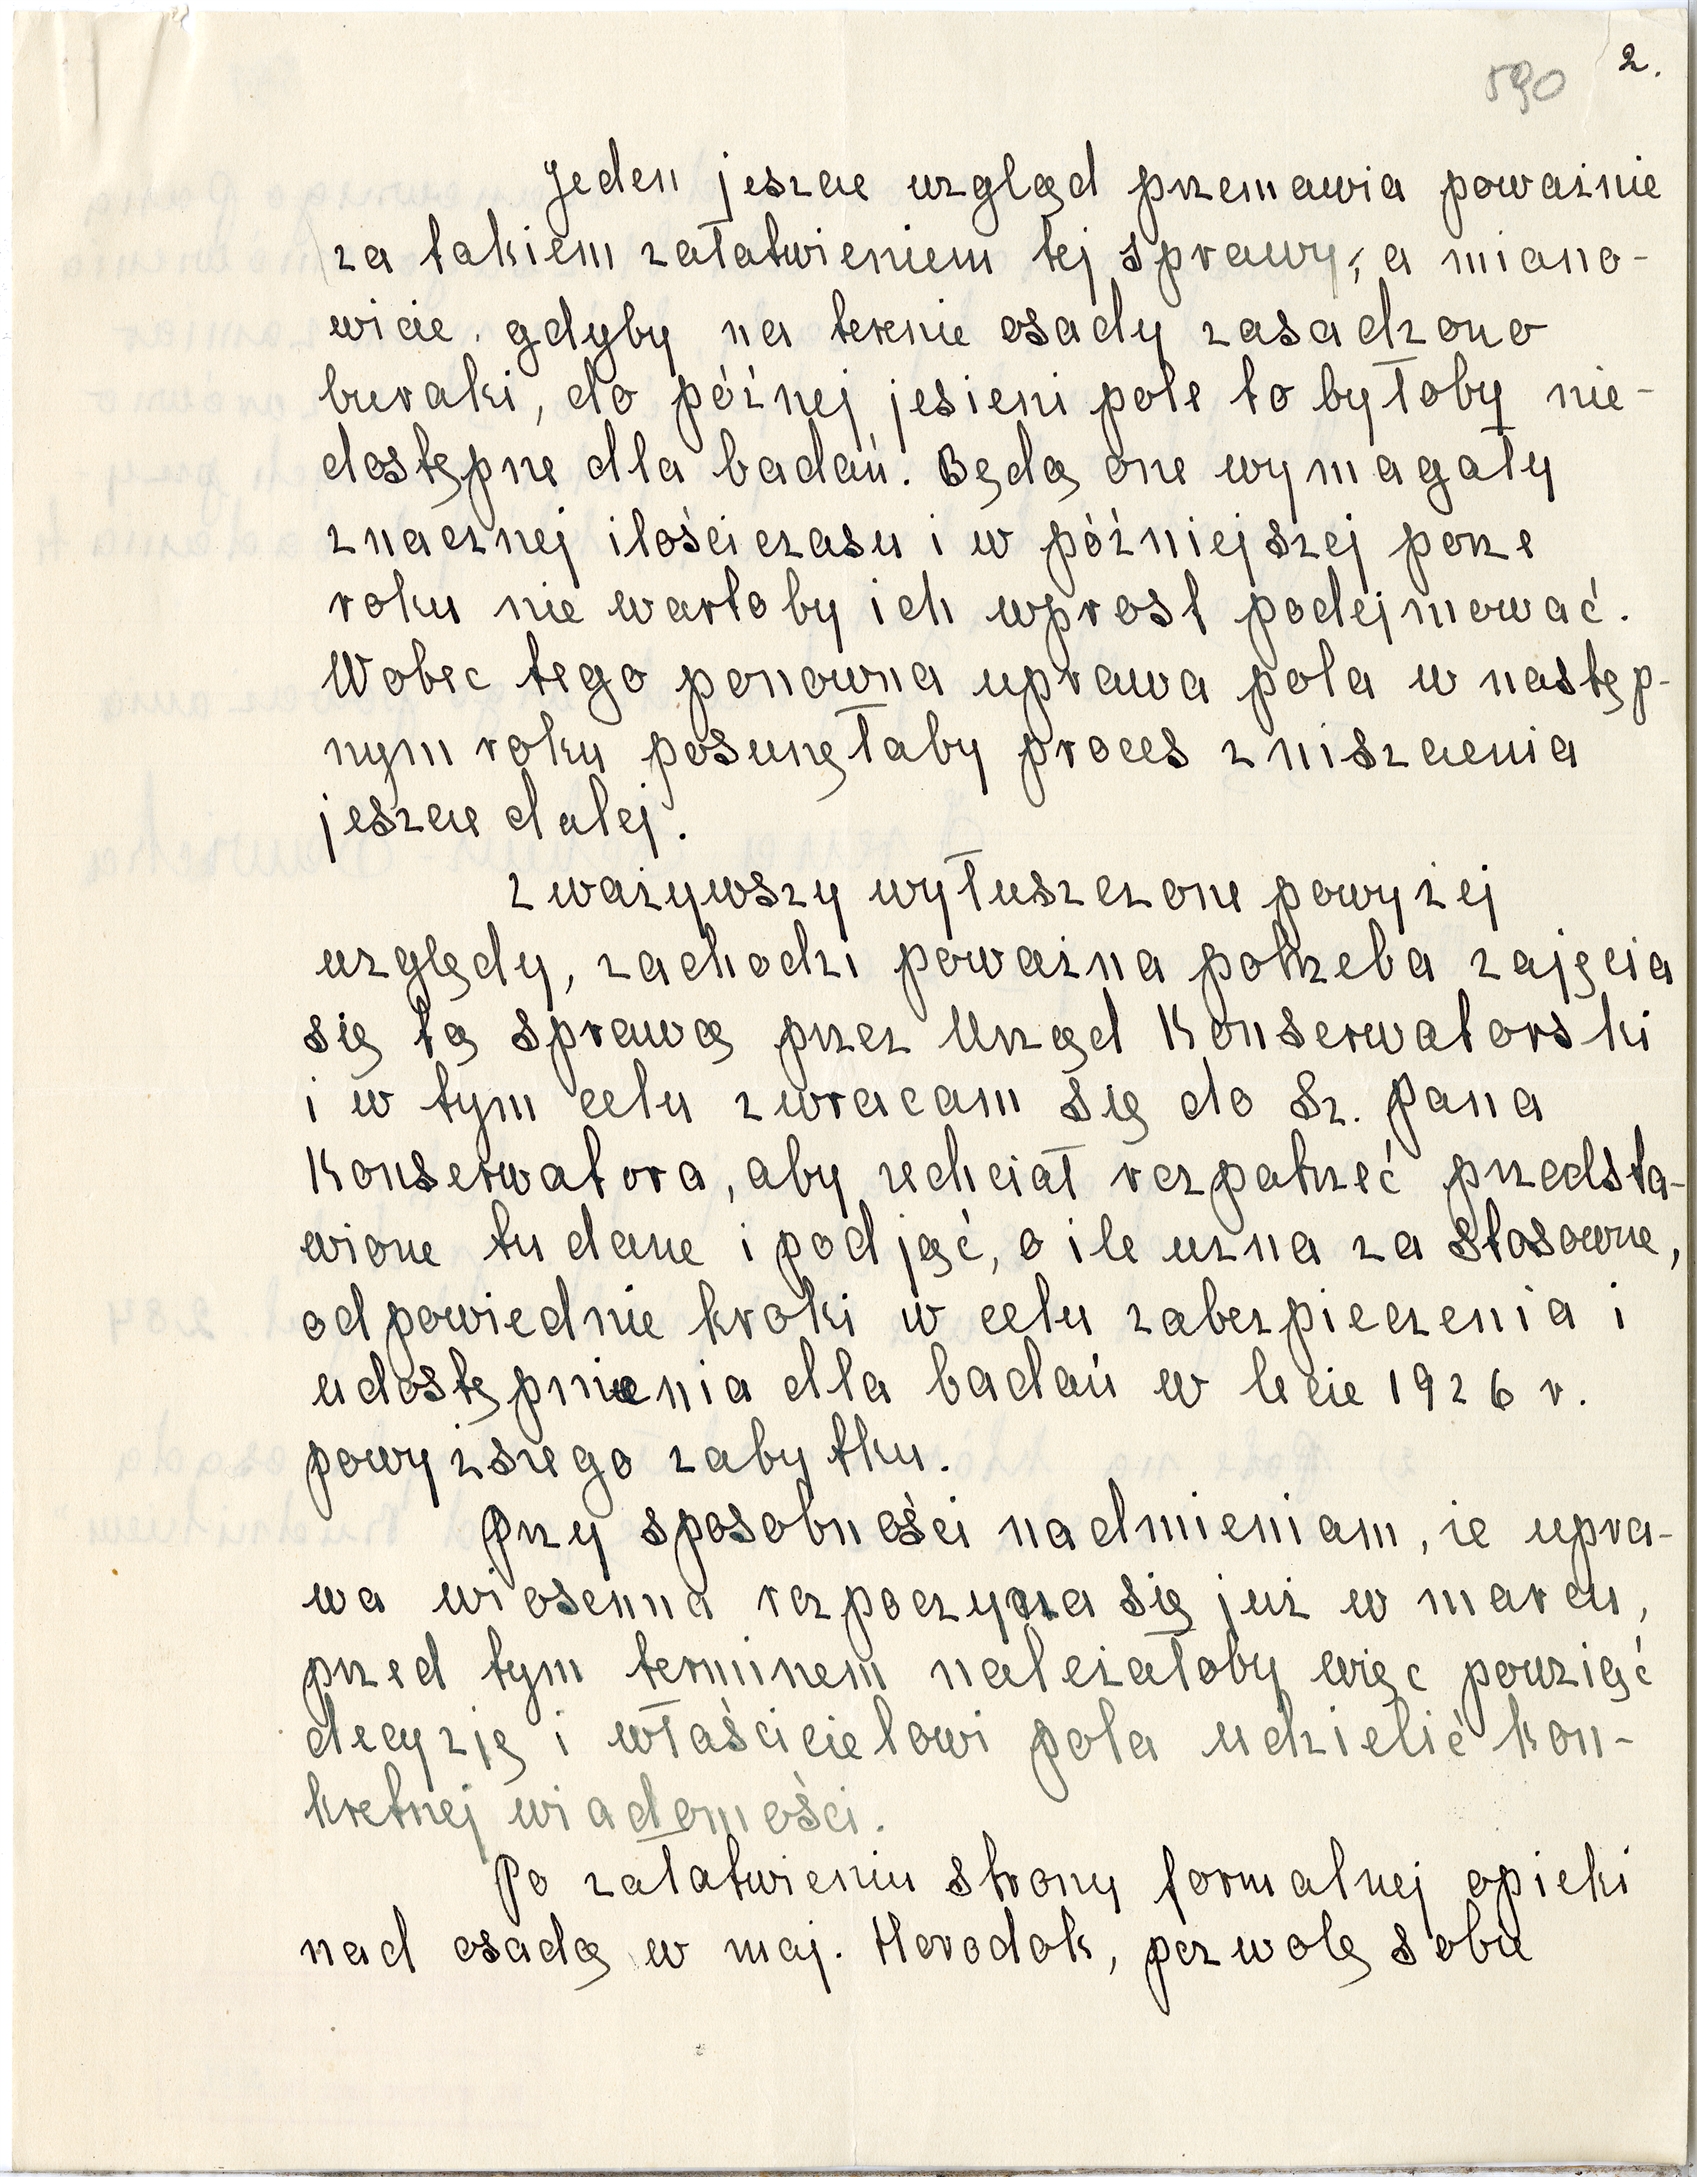 590 2.
Jeden jeszcze wzgląd przemawia poważnie
za takiem załatwieniem tej sprawy, a miano-
wicie. gdyby na terenie osady zasadzono
buraki, do późnej jesieni pole to byłoby nie-
dostępne dla badań. Będą one wymagały
znacznej ilości czasu i w późniejszej porze
roku nie wartoby ich wprost podejmować.
Wobec tego ponowna uprawa pola w następ-
nym roku posunęłaby proces zniszczenia
jeszcze dalej.
Zważywszy wyłuszczone powyżej
względy, zachodzi poważna potrzeba zajęcia
się tą sprawą przez Urząd Konserwatorski
i w tym celu zwracam się do Sz. Pana
Konserwatora, aby zechciał rozpatrzeć przedsta-
wione tu dane i podjąć, o ile uzna za stosowne,
odpowiednie kroki w celu zabezpieczenia i
udostępnienia dla badań w lecie 1926 r.
powyższego zabytku.
Przy sposobności nadmieniam, że upra-
wa wiosenna rozpoczyna się już w marcu,
przed tym terminem należałoby więc powziąć
decyzję i właścicielowi pola udzielić kon-
kretnej wiadomości.
Po załatwieniu strony formalnej opieki
nad osadą w maj. Horodok, pozwolę sobie